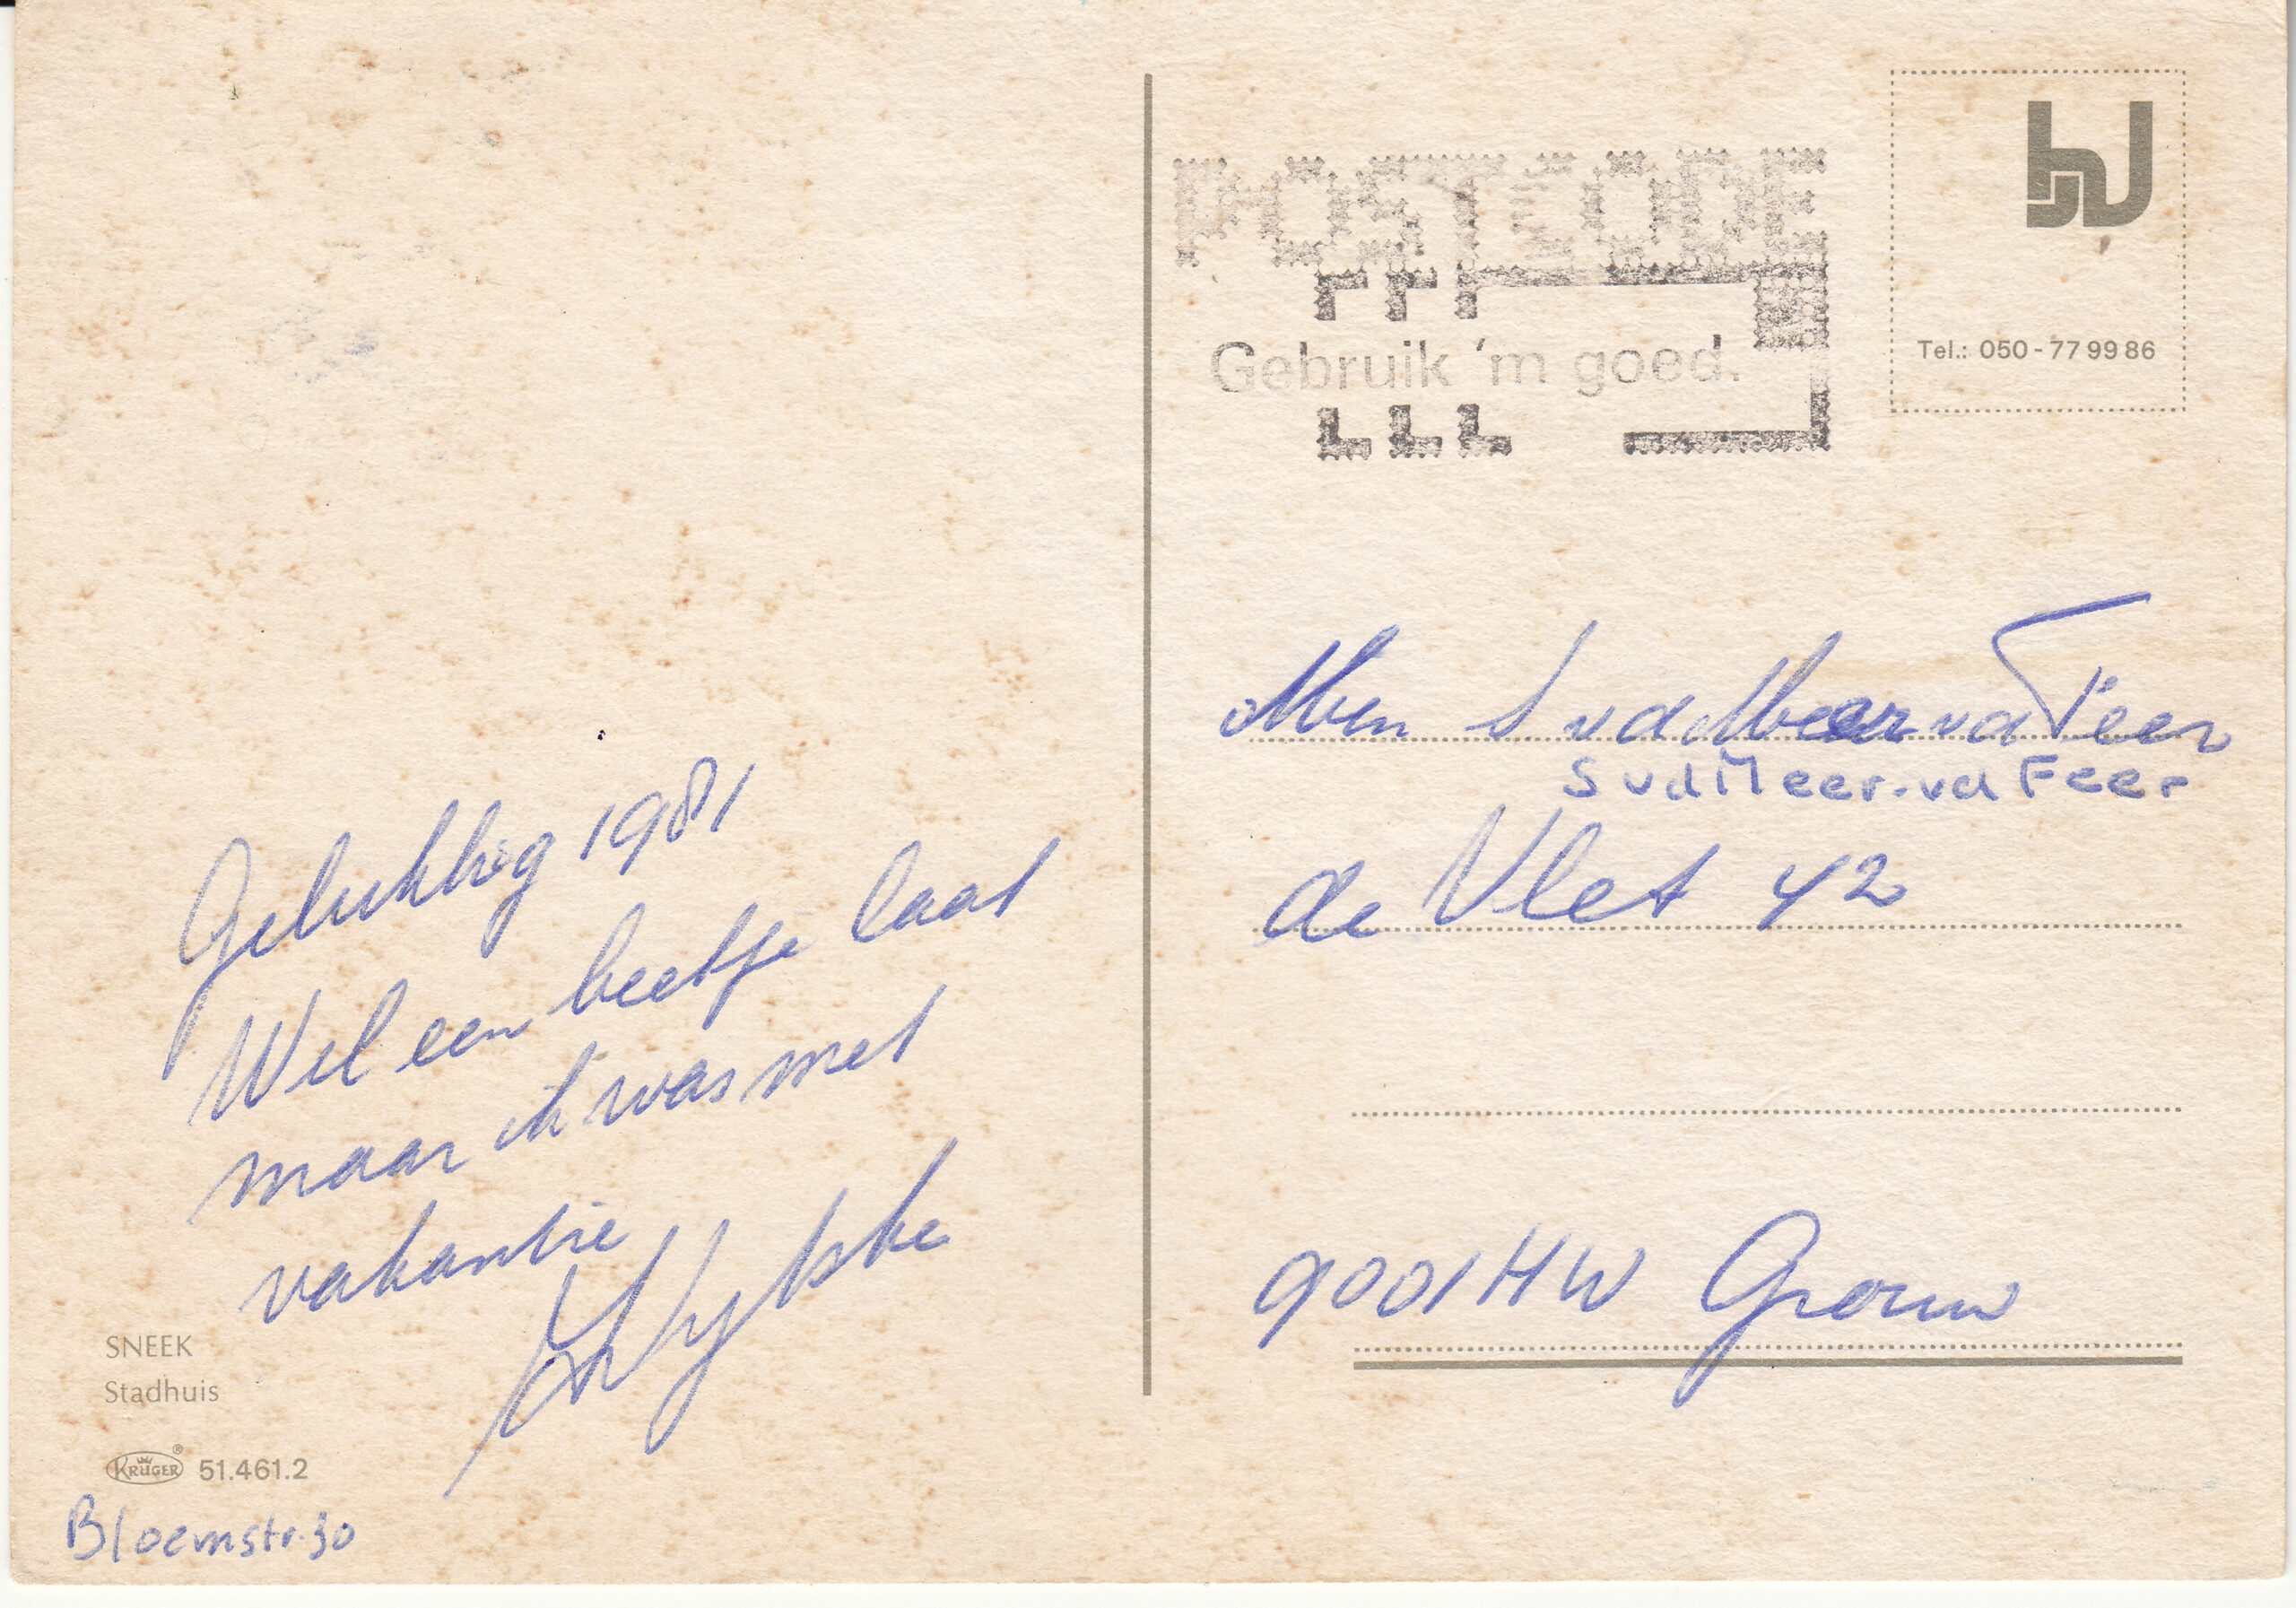 Gelukkig 1981
Wel een beetje laat
maar ik was met
vakantie
Wytske
SNEEK
Stadhuis
KRÜGER® 51.461.2
Bloemstr. 30
POSTCODE
Gebruik 'm goed.
Tel.: 050-779986
Mevr S. vd Meer vd Feer
S vd Meer-vd Feer
de Vlet 42
9001 HW Grouw